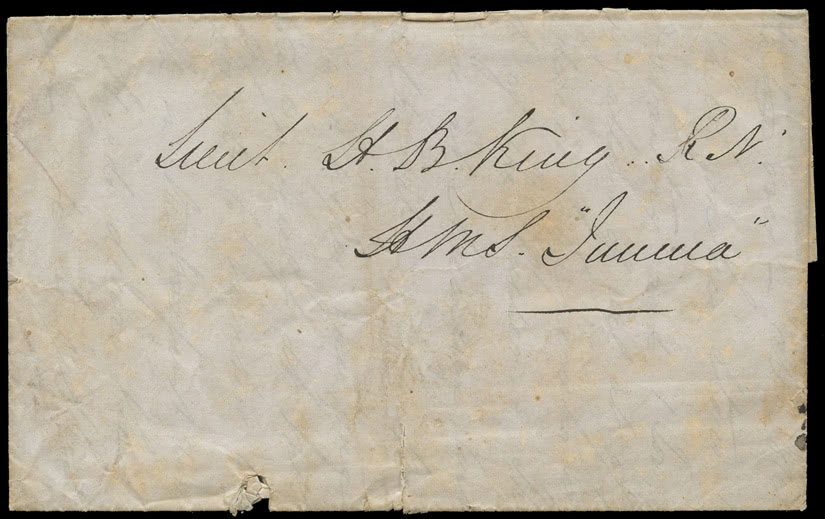 Lieut. H. B. King. R.N.
HMS. "Jumna"